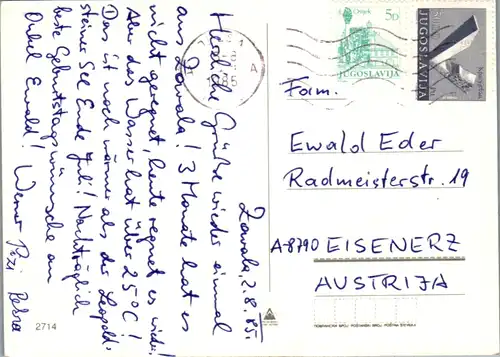 Zavala, 2.8.85.
Herzliche Grüße wieder einmal
aus Zavala! 3 Monate hat es
nicht geregnet, heute regnet es wieder!
Aber das Wasser hat über 25°C!
Das ist noch wärmer als der Leopold-
steiner See Ende Juli! Nachträglich
beste Geburtstagswünsche an
Onkel Ewald! Werner
2714
Osijek
5D
JUGOSLAVIJA
JUGOSLAVIJA
85
Fam.
Ewald Eder
Radmeisterstr. 19
A-8790 EISENERZ
AUSTRIJA